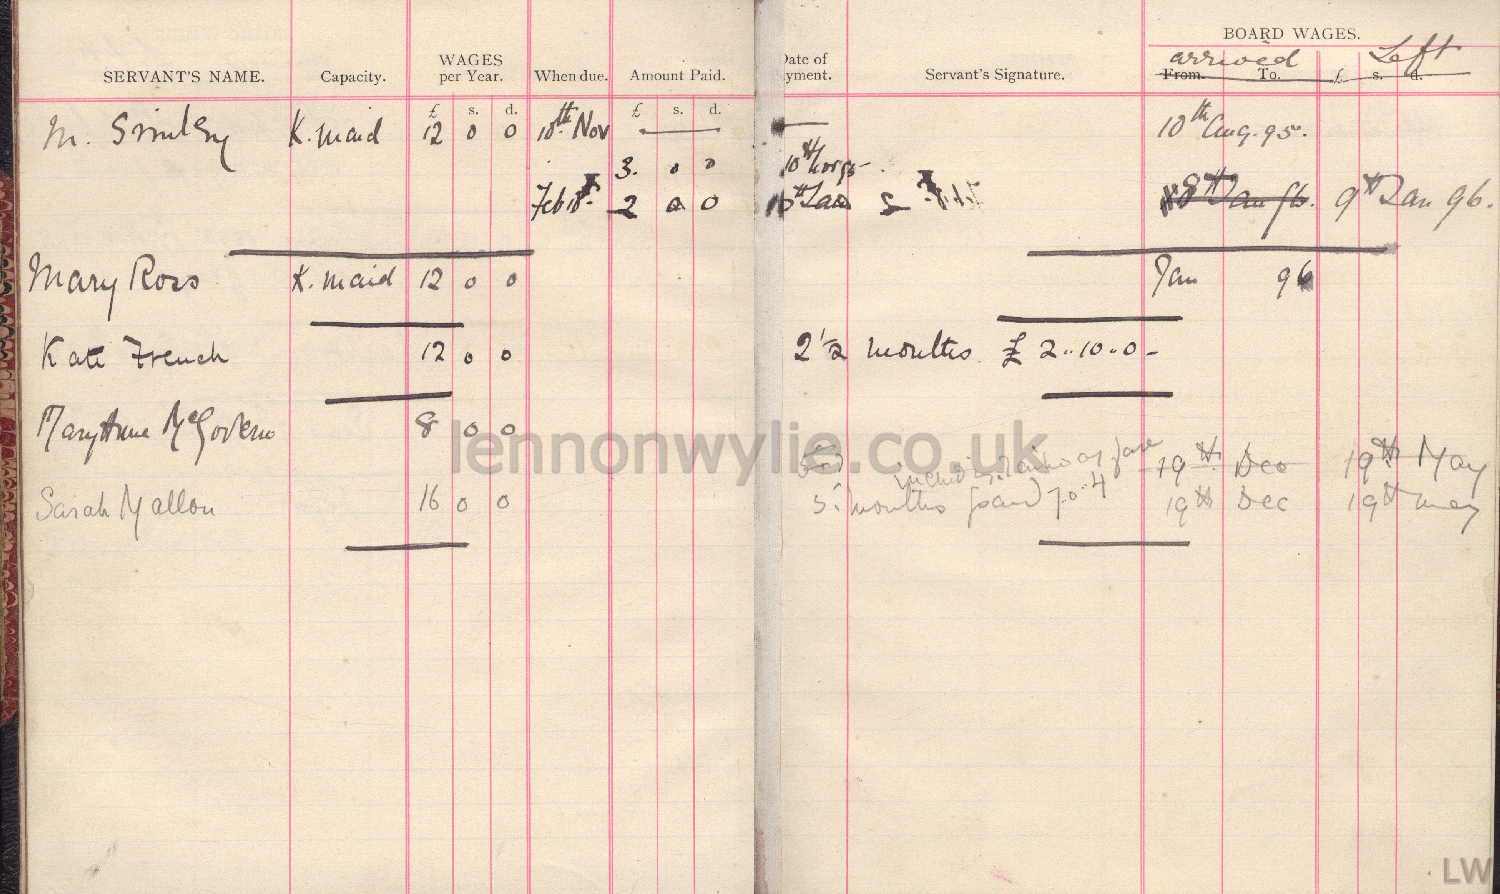 BOARD WAGES.
arrived Left
SERVANT'S NAME. Capacity. WAGES per Year. When due. Amount Paid. Date of yment. Servant's Signature. From. To. £ s. d.
£ s. d. £ s. d.
M. K. maid 12 0 0 10th Nov 10th Aug. 95.
3. 0 0 10th
Feb 2 0 0 8th Jan 96. 9th Jan 96.
Mary Ross K. maid 12 0 0 Jan 96
Kate French 12 0 0 2 1/2 months £ 2..10..0-
MaryAnne McGovern 8 0 0 railway fare 19th Dec 19th May
Sarah Mallon 16 0 0 5 months paid 7.0.4 19th Dec 19th May
lennonwylie.co.uk
LW